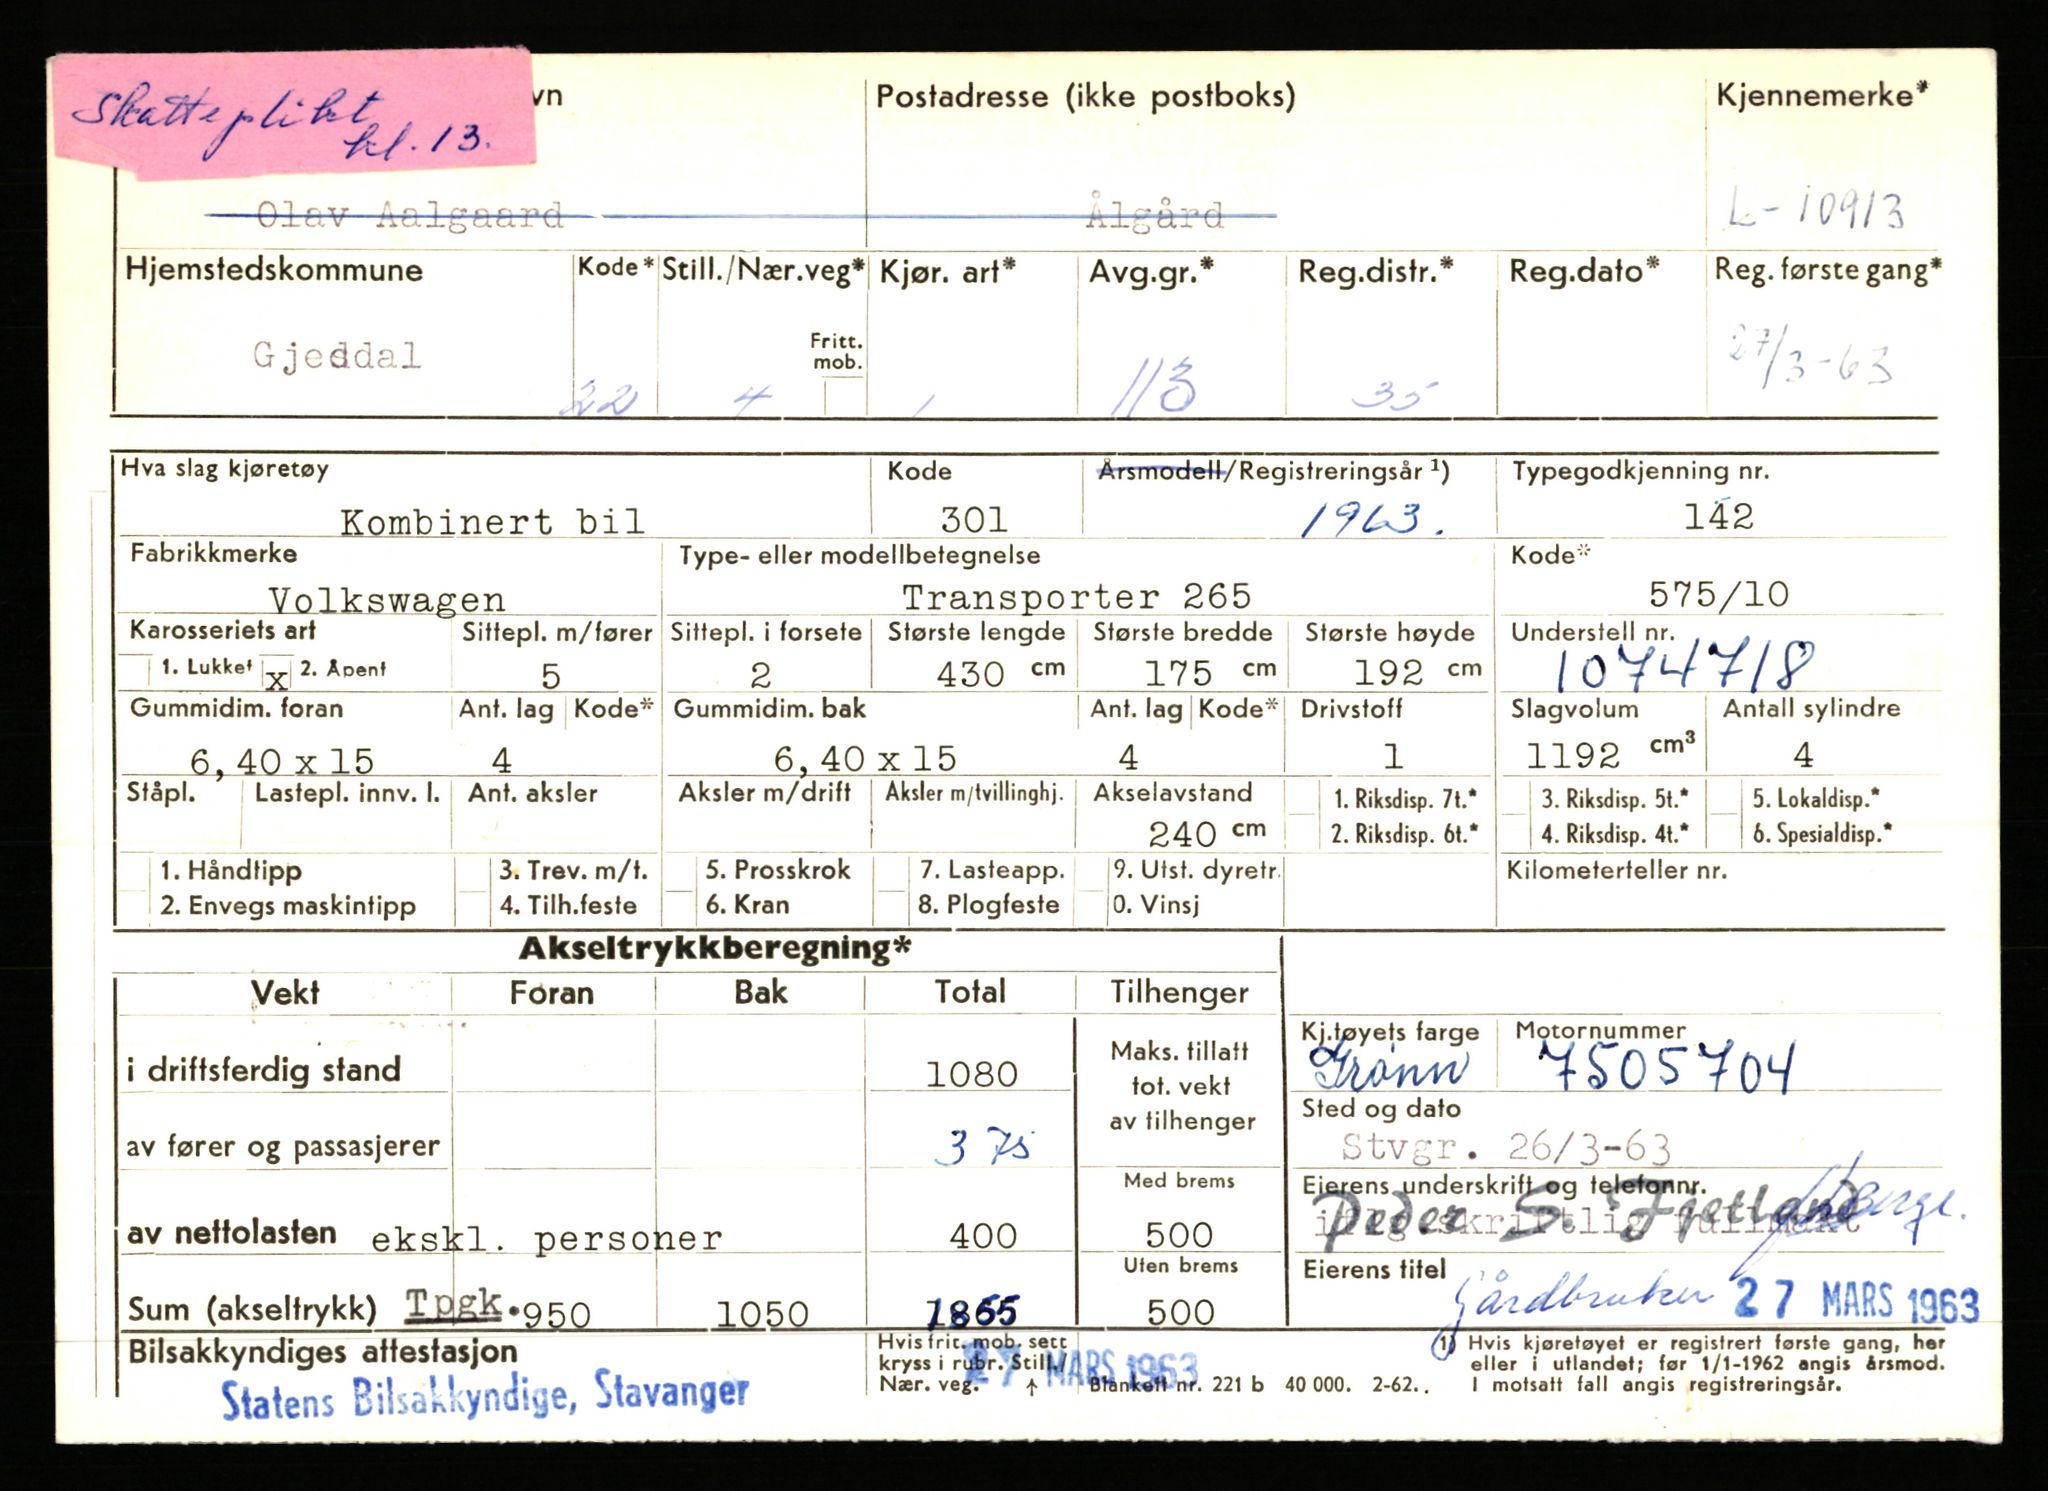 Skatteplikt
kl. 13.
vn Postadresse (ikke postboks) Kjennemerke*
Olav Aalgaard Ålgård L-10913
Hjemstedskommune Kode* Still./Nær.veg* Kjør. art* Avg.gr.* Reg.distr.* Reg.dato* Reg. første gang*
Fritt.
mob.
Gjesdal 22 4 1 113 35 27/3-63
Hva slag kjøretøy Kode Årsmodell/Registreringsår ¹) Typegodkjenning nr.
Kombinert bil 301 1963. 142
Fabrikkmerke Type- eller modellbetegnelse Kode*
Volkswagen Transporter 265 575/10
Karosseriets art Sittepl. m/fører Sittepl. i forsete Største lengde Største bredde Største høyde Understell nr.
1. Lukket x 2. Åpent 5 2 430 cm 175 cm 192 cm 1074718
Gummidim. foran Ant. lag Kode* Gummidim. bak Ant. lag Kode* Drivstoff Slagvolum Antall sylindre
6,40 x 15 4 6,40 x 15 4 1 1192 cm³ 4
Ståpl. Lastepl. innv. l. Ant. aksler Aksler m/drift Aksler m/tvillinghj. Akselavstand 1. Riksdisp. 7t.* 3. Riksdisp. 5t.* 5. Lokaldisp.*
240 cm 2. Riksdisp. 6t.* 4. Riksdisp. 4t.* 6. Spesialdisp.*
1. Håndtipp 3. Trev. m/t. 5. Prosskrok 7. Lasteapp. 9. Utst. dyretr. Kilometerteller nr.
2. Envegs maskintipp 4. Tilh.feste 6. Kran 8. Plogfeste 0. Vinsj
Akseltrykkberegning*
Vekt Foran Bak Total Tilhenger
Kj.tøyets farge Motornummer
i driftsferdig stand 1080 Maks. tillatt
tot. vekt
av tilhenger Grønn 7505704
Sted og dato
av fører og passasjerer 375 Stvgr. 26/3-63
Med brems Eierens underskrift og telefonnr.
Peder S. Fjetland
iflg.skriftlig fullmakt
av nettolasten ekskl. personer 400 500
Uten brems Eierens titel
Gårdbruker 27 MARS 1963
Sum (akseltrykk) Tpgk. 950 1050 1855 500
Bilsakkyndiges attestasjon Hvis frit. mob. sett
kryss i rubr. Still./
Nær. veg. ↑
27 MARS 1963
Blankett nr. 221 b 40 000. 2-62.
1) Hvis kjøretøyet er registrert første gang, her
eller i utlandet; før 1/1-1962 angis årsmod.
I motsatt fall angis registreringsår.
Statens Bilsakkyndige, Stavanger